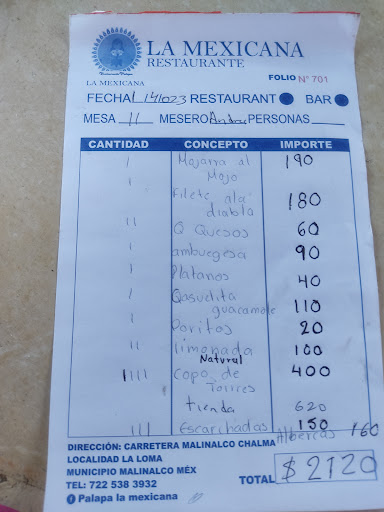 LA MEXICANA
RESTAURANTE
LA MEXICANA
FOLIO N° 701
FECHA 1/141023 RESTAURANT BAR
MESA 11 MESERO Andru PERSONAS
CANTIDAD CONCEPTO IMPORTE
I Mojarra al 190
I Mojo
I Filete ala 180
diabla
II Q Quesos 60
I ambuegesa 90
I Platanos 40
I Qasuelita 110
guacamole
I Doritos 20
II limonada 100
Natural
IIII Copo de 400
Torrres
tienda 620
III Escarchadas 150
Albercas 160
DIRECCIÓN: CARRETERA MALINALCO CHALMA
LOCALIDAD LA LOMA
MUNICIPIO MALINALCO MÉX
TEL: 722 538 3932
Palapa la mexicana
TOTAL $2120